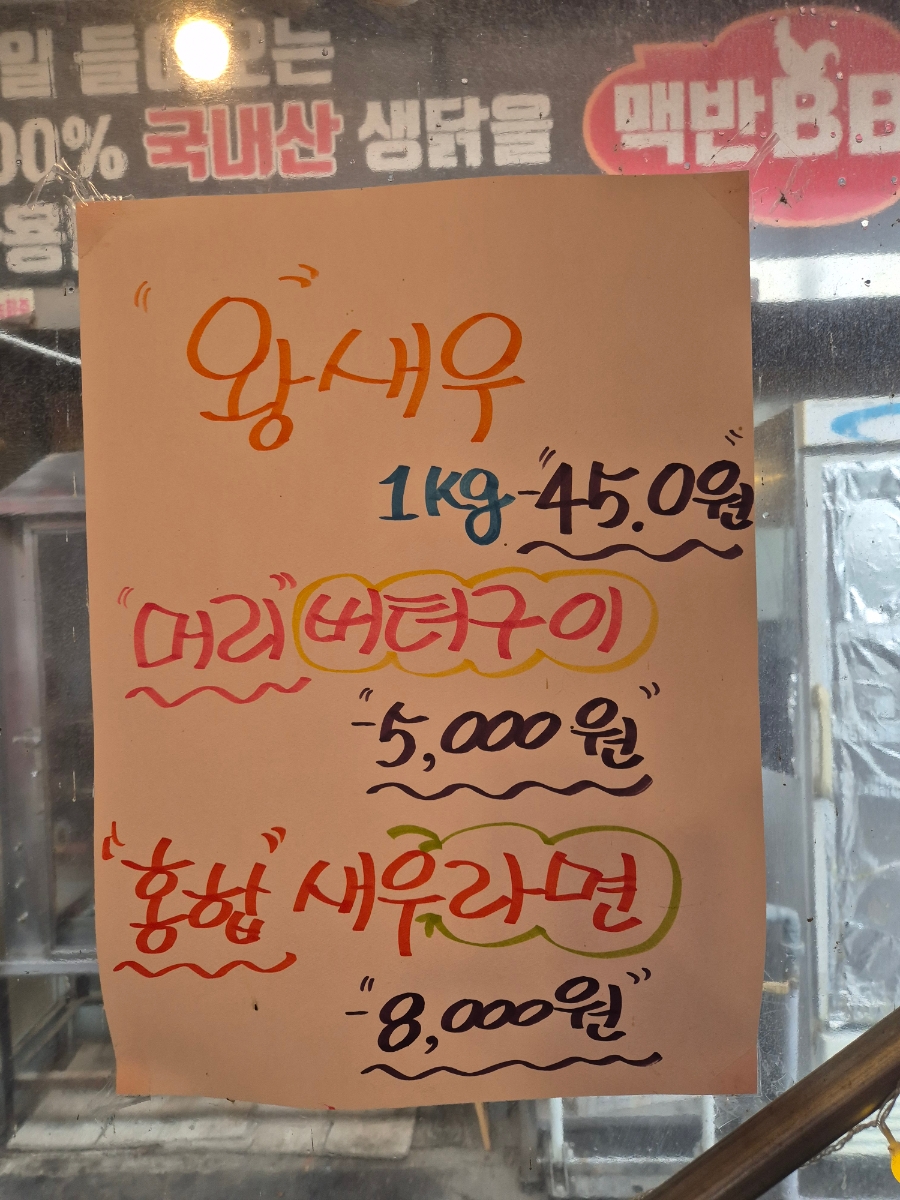 일 들어오는
00% 국내산 생닭을
맥반BB
용
"왕"새우
1kg-"45.0원"
"머리"버터구이
-"5,000원"
"홍합"새우라면
-"8,000원"